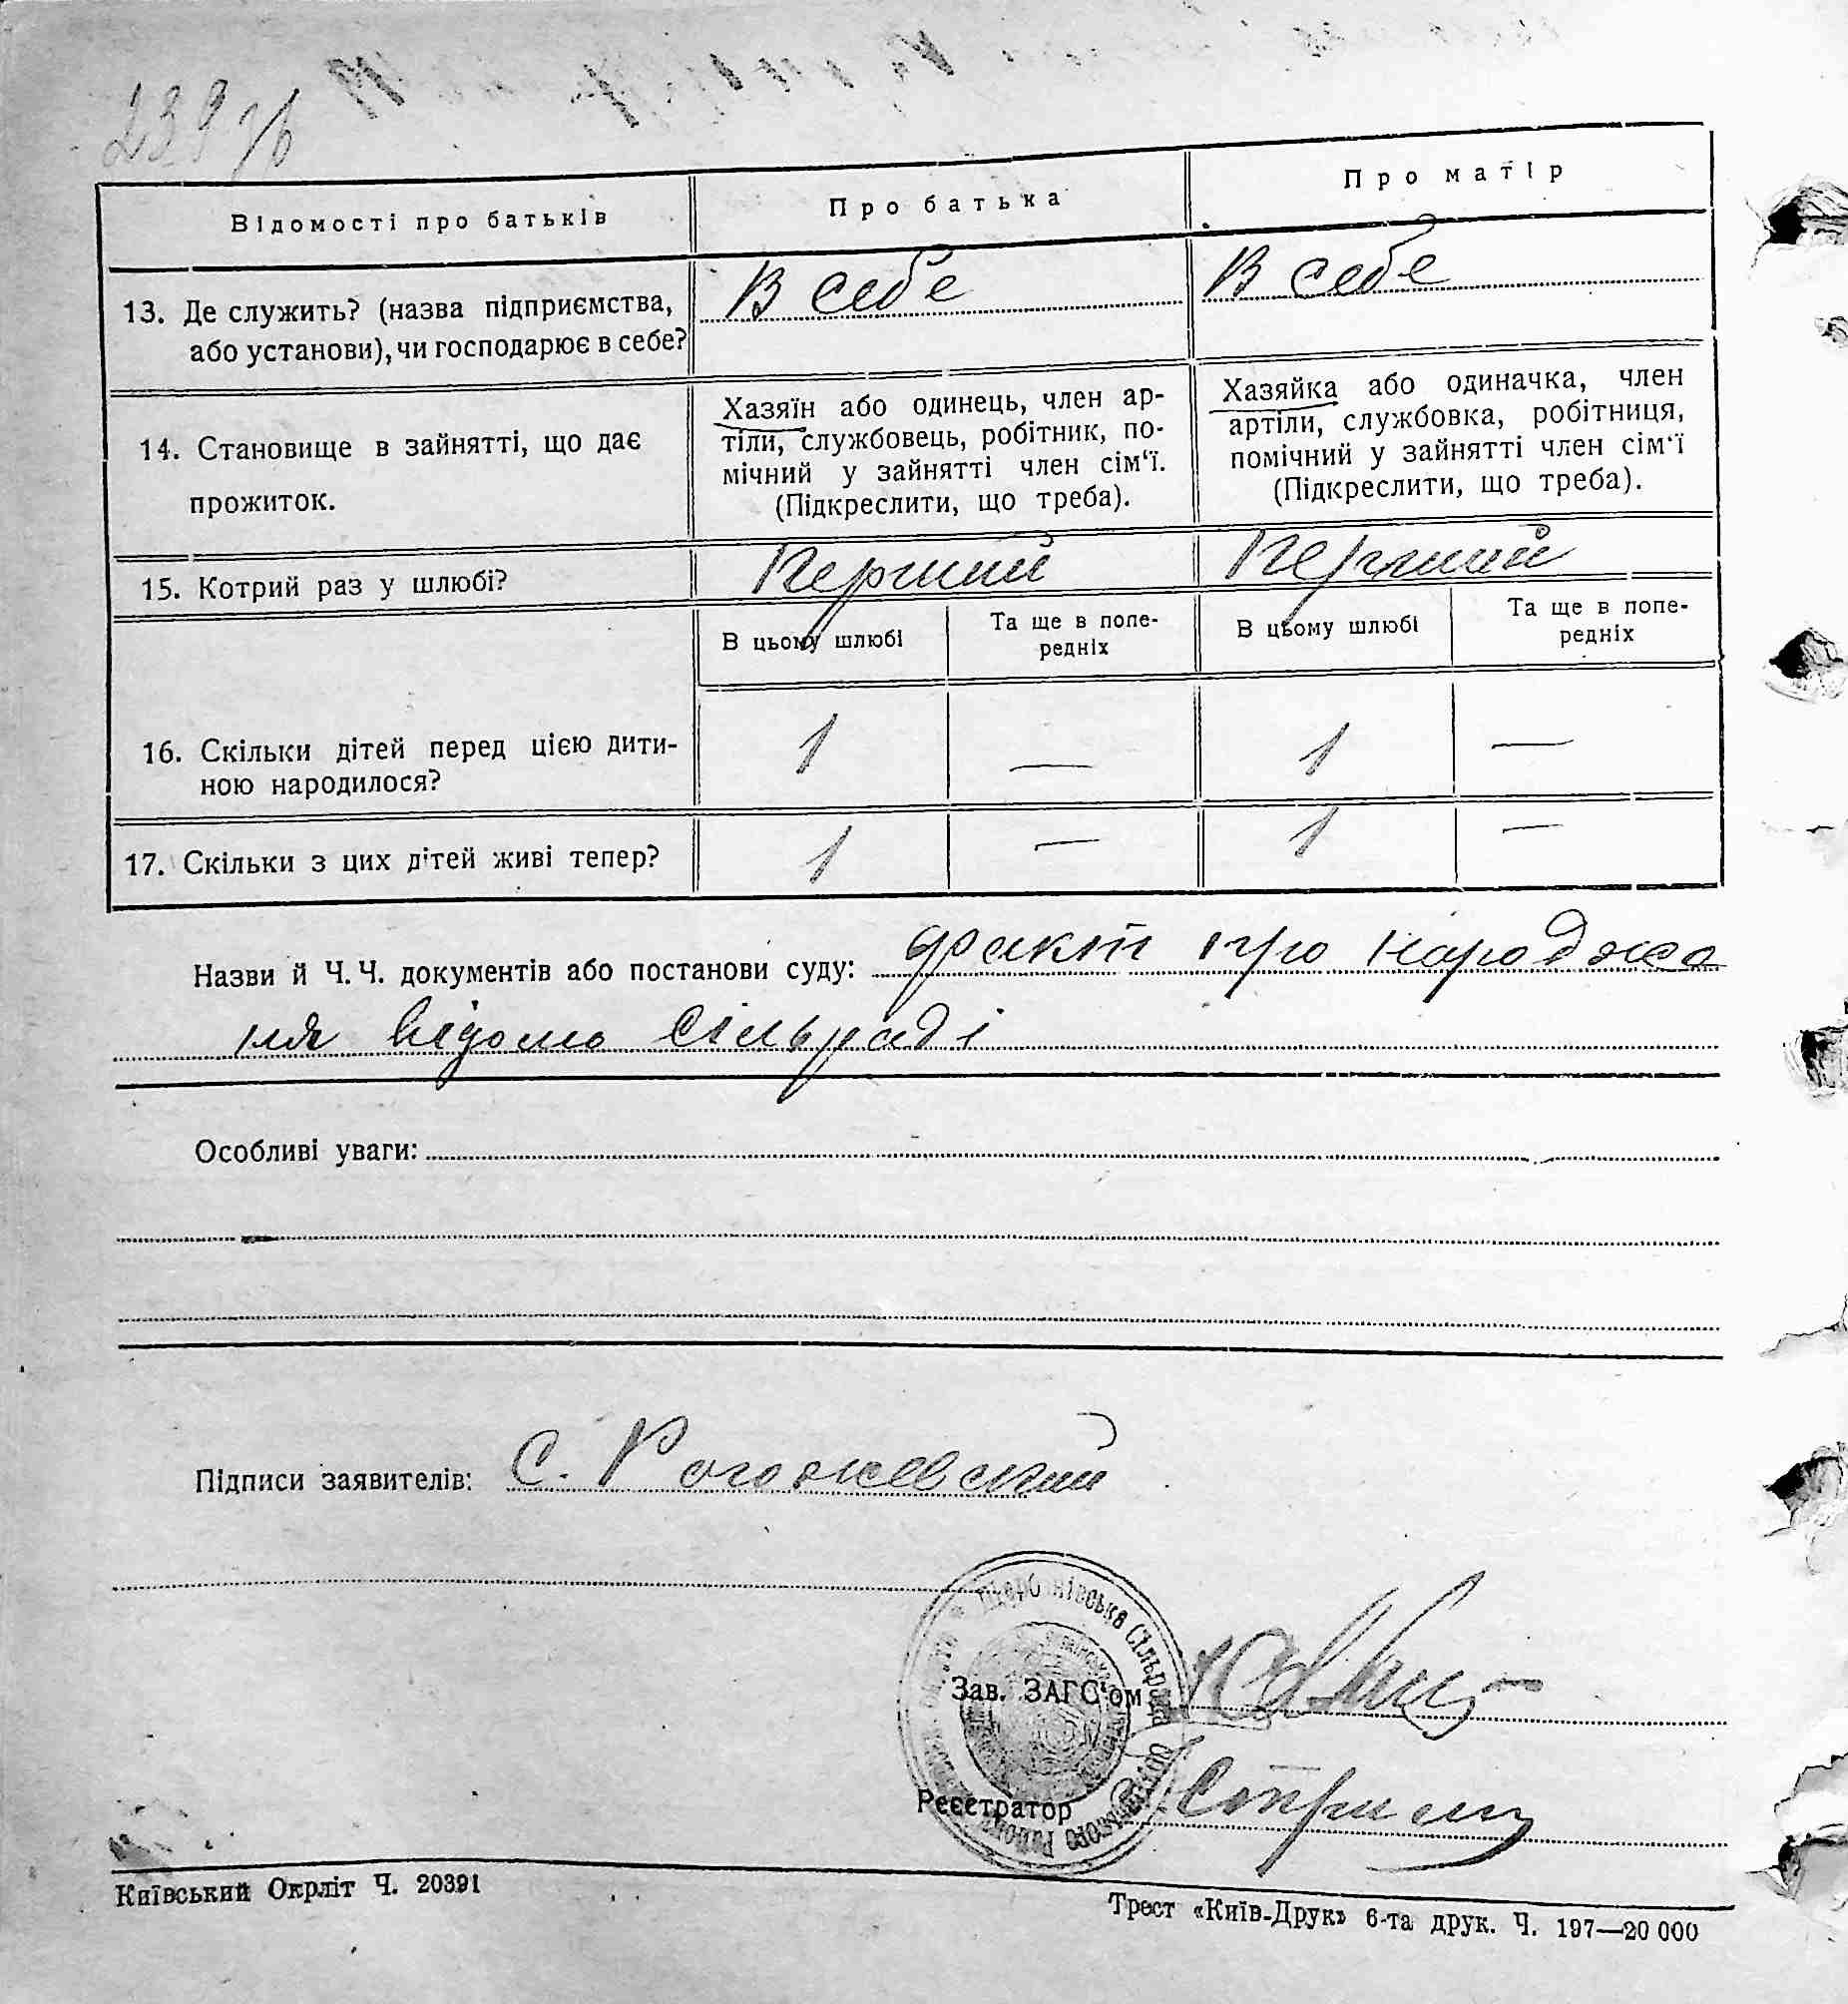 239 зв
Відомості про батьків
Про батька
Про матір
13. Де служить? (назва підприємства,
або установи), чи господарює в себе?
В себе
В себе
14. Становище в зайнятті, що дає
прожиток.
Хазяїн або одинець, член ар-
тіли, службовець, робітник, по-
мічний у зайнятті член сім'ї.
(Підкреслити, що треба).
Хазяйка або одиначка, член
артіли, службовка, робітниця,
помічний у зайнятті член сім'ї
(Підкреслити, що треба).
15. Котрий раз у шлюбі?
Перший
Перший
В цьому шлюбі
Та ще в попе-
редніх
В цьому шлюбі
Та ще в попе-
редніх
16. Скільки дітей перед цією дити-
ною народилося?
1
—
1
—
17. Скільки з цих дітей живі тепер?
1
—
1
—
Назви й Ч. Ч. документів або постанови суду: факт про народже
ня відомо сільраді
Особливі уваги:
Підписи заявителів: С. Рогожевский
Щербанівська Сільрада
Зав. ЗАГС'ом
Реєстратор
Київський Окрліт Ч. 20391
Трест «Київ-Друк» 6-та друк. Ч. 197—20 000